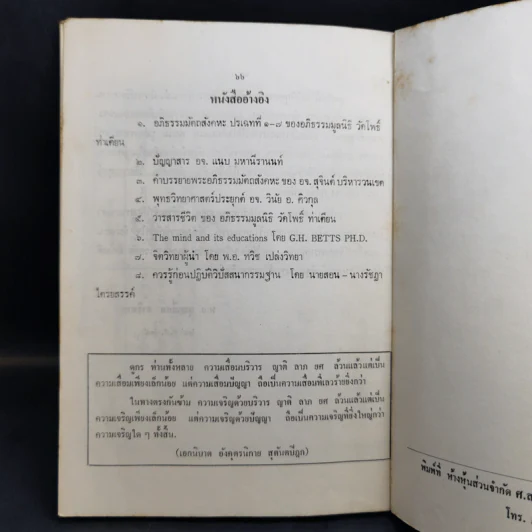 ๖๖
หนังสืออ้างอิง
๑. อภิธรรมมัตถสังคหะ ปรเฉทที่ ๑-๘ ของอภิธรรมมูลนิธิ วัดโพธิ์
ท่าเตียน
๒. ปัญญาสาร อจ. แนบ มหานีรานนท์
๓. คำบรรยายพระอภิธรรมมัตถสังคหะ ของ อจ. สุจินต์ บริหารวนเขต
๔. พุทธวิทยาศาสตร์ประยุกต์ อจ. วินัย อ. ศิวกุล
๕. วารสารชีวิต ของ อภิธรรมมูลนิธิ วัดโพธิ์ ท่าเตียน
๖. The mind and its educations โดย G.H. BETTS PH.D.
๗. จิตวิทยาผู้นำ โดย พ.อ. ทวิช เปล่งวิทยา
๘. ควรรู้ก่อนปฏิบัติวิปัสสนากรรมฐาน โดย นายสอน - นางรัชฎา
ไตรยสรรค์
ดูกร ท่านทั้งหลาย ความเสื่อมบริวาร ญาติ ลาภ ยศ ล้วนแล้วแต่เป็น
ความเสื่อมเพียงเล็กน้อย แต่ความเสื่อมปัญญา ถือเป็นความเสื่อมที่เลวร้ายยิ่งกว่า
ในทางตรงกันข้าม ความเจริญด้วยบริวาร ญาติ ลาภ ยศ ล้วนแล้วแต่เป็น
ความเจริญเพียงเล็กน้อย แต่ความเจริญด้วยปัญญา ถือเป็นความเจริญที่ยิ่งใหญ่กว่า
ความเจริญใด ๆ ทั้งสิ้น.
(เอกนิบาต อังคุตรนิกาย สุตันตปิฎก)
พิมพ์ที่ ห้างหุ้นส่วนจำกัด ศ.ส
โทร.